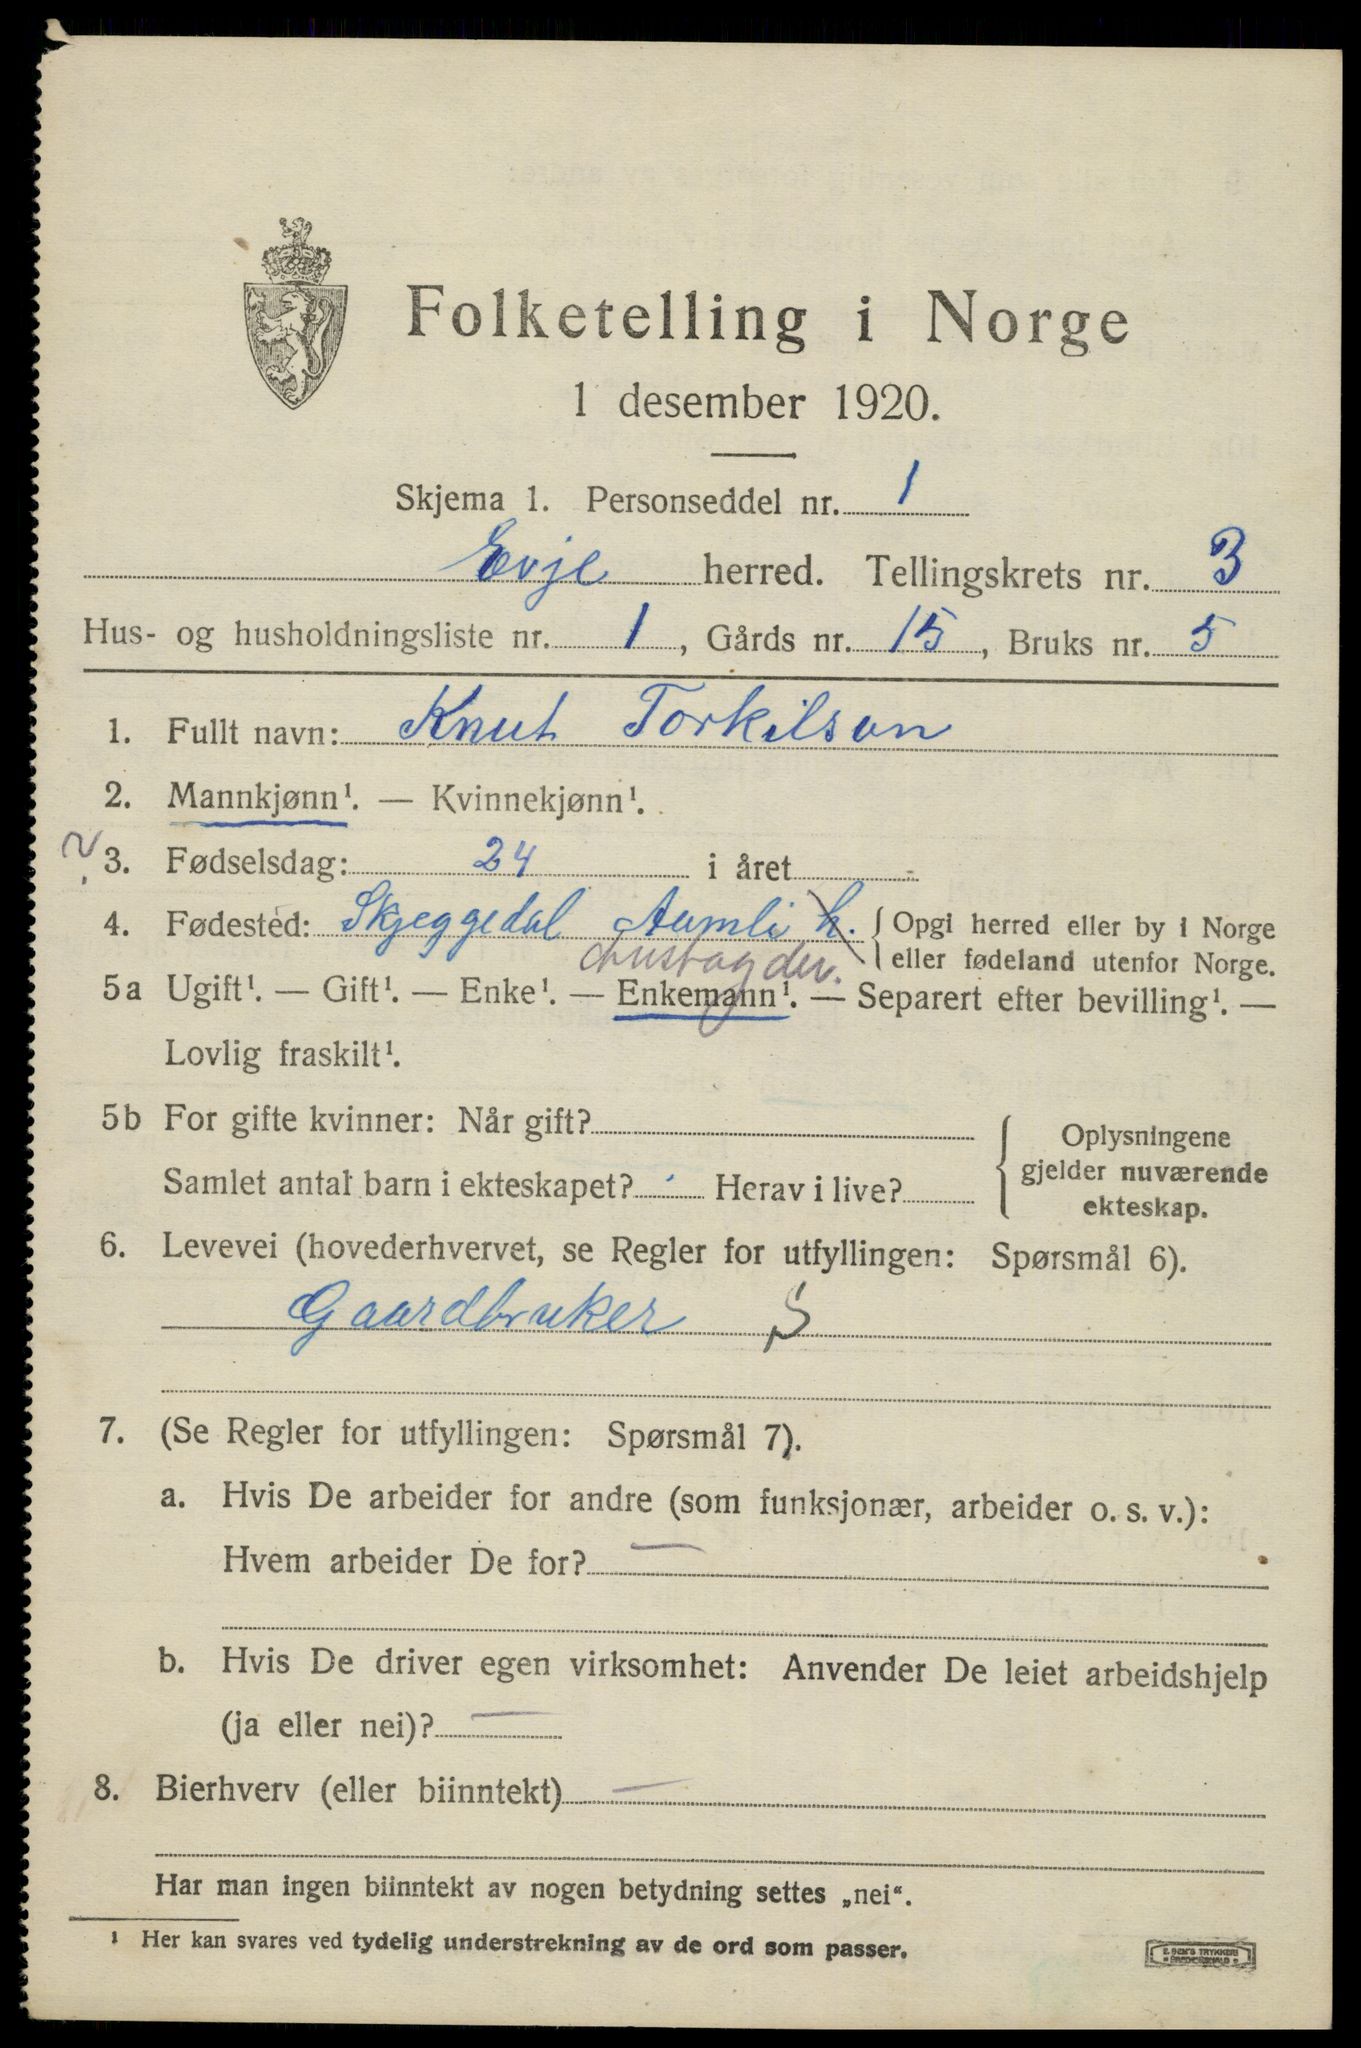 Folketelling i Norge
1 desember 1920.
Skjema 1. Personseddel nr. 1
Evje herred. Tellingskrets nr. 3
Hus- og husholdningsliste nr. 1, Gårds nr. 15, Bruks nr. 5
1. Fullt navn: Knut Torkilson
2. Mannkjønn¹. — Kvinnekjønn¹.
? 3. Fødselsdag: 24 i året -
4. Fødested: Skjeggedal Aamli h. { Opgi herred eller by i Norge
eller fødeland utenfor Norge.
Austagder.
5a Ugift¹. — Gift¹. — Enke¹. — Enkemann¹. — Separert efter bevilling¹. —
Lovlig fraskilt¹.
5b For gifte kvinner: Når gift?
Samlet antal barn i ekteskapet? Herav i live?
{ Oplysningene
gjelder nuværende
ekteskap.
6. Levevei (hovederhvervet, se Regler for utfyllingen: Spørsmål 6).
Gaardbruker S
7. (Se Regler for utfyllingen: Spørsmål 7).
a. Hvis De arbeider for andre (som funksjonær, arbeider o. s. v.):
Hvem arbeider De for? —
b. Hvis De driver egen virksomhet: Anvender De leiet arbeidshjelp
(ja eller nei)? —
8. Bierhverv (eller biinntekt) —
Har man ingen biinntekt av nogen betydning settes „nei“.
¹ Her kan svares ved tydelig understrekning av de ord som passer.
E. SEM'S TRYKKERI
FREDRIKSHALD